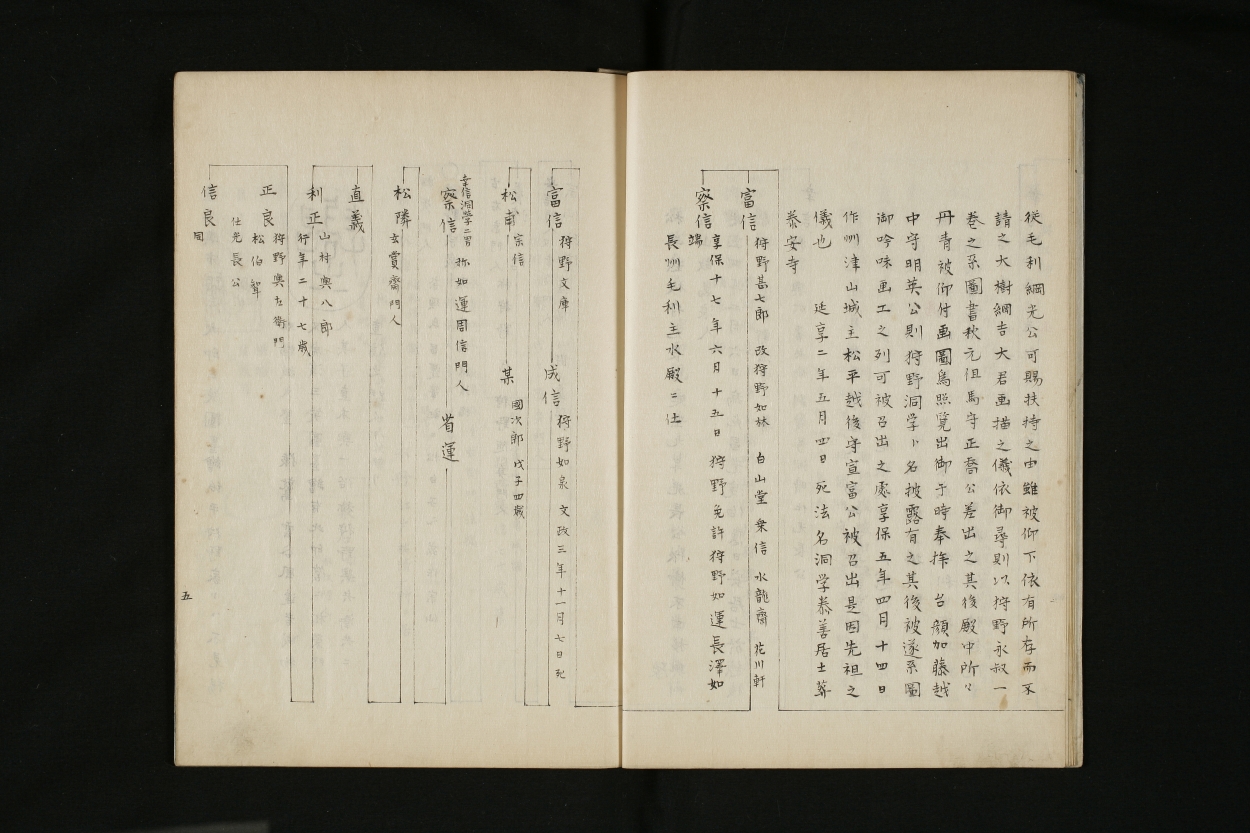 従毛利綱光公可賜扶持之由雖被仰下依有所存而不
請之大樹綱吉大君画描之儀依御尋則以狩野永叔一
巻之系圖書秋元但馬守正喬公差出之其後殿中所々
丹青被仰付画圖鳥照覧出御于時奉捧 台顔加藤越
中守明英公則狩野洞学ト名披露有之其後被遂系圖
御吟味画工之列可被召出之處享保五年四月十四日
作州津山城主松平越後守宣富公被召出是因先祖之
儀也 延享二年五月四日死法名洞学泰善居士葬
泰安寺
富信 狩野甚七郎 改狩野如林 白山堂 衆信 水龍齋 花川軒
察信 享保十七年六月十五日 狩野免許狩野如運長澤如
端
長州毛利主水殿ニ仕
富信 狩野文庫
成信 狩野如泉 文政三年十一月七日死
松甫 宗信
某 國次郎 戊子四歳
幸信洞学二男
察信 称如運周信門人
省運
松隣 玄賞齋門人
直義
利正 山村奥八郎
行年二十七歳
正良 狩野奥左衛門
松伯聟
仕光長公
信良 同
五